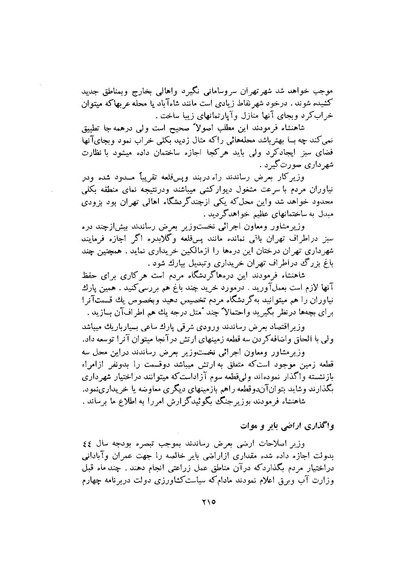 موجب خواهد شد شهر تهران سروسامانی نگیرد واهالی بخارج وبمناطق جدید
کشیده شوند . درخود شهر نقاط زیادی است مانند شاه‌آباد یا محله عربها که میتوان
خراب کرد وبجای آنها منازل وآپارتمانهای زیبا ساخت .
شاهنشاه فرمودند این مطلب اصولاً صحیح است ولی درهمه جا تطبیق
نمی‌کند چه بسا بهتر باشد محله‌هائی را که مثال زدید بکلی خراب نمود وبجای آنها
فضای سبز ایجاد کرد ولی باید هرکجا اجازه ساختمان داده میشود با نظارت
شهرداری صورت گیرد .
وزیر کار بعرض رساندند راه دربند وپس‌قلعه تقریباً مسدود شده ودر
نیاوران مردم با سرعت مشغول دیوارکشی میباشند ودرنتیجه نمای منطقه بکلی
محدود خواهد شد واین محل که یکی ازچند گردشگاه اهالی تهران بود بزودی
مبدل به ساختمانهای عظیم خواهد گردید .
وزیرمشاور ومعاون اجرائی نخست‌وزیر بعرض رساندند بیش ازچند دره
سبز دراطراف تهران باقی نمانده مانند پس‌قلعه وگلابدره اگر اجازه فرمایند
شهرداری تهران درختان این دره‌ها را ازمالکین خریداری نماید . همچنین چند
باغ بزرگ دراطراف تهران خریداری وتبدیل بپارک شود .
شاهنشاه فرمودند این دره‌ها گردشگاه مردم است هر کاری برای حفظ
آنها لازم است بعمل آورید . درمورد خرید چند باغ هم بررسی کنید . همین پارک
نیاوران را هم میتوانید به گردشگاه مردم تخصیص دهید وبخصوص یک قسمت آنرا
برای بچه‌ها درنظر بگیرید واحتمالاً چند متل درجه یک هم اطراف آن بسازید .
وزیر اقتصاد بعرض رساندند ورودی شرقی پارک ساعی بسیار باریک میباشد
ولی با الحاق واضافه کردن سه قطعه زمینهای ارتش درآنجا میتوان آنرا توسعه داد.
وزیرمشاور ومعاون اجرائی نخست‌وزیر بعرض رساندند دراین محل سه
قطعه زمین موجود است که متعلق به ارتش میباشد دوقسمت را بدونفر ازامراء
بازنشسته واگذار نموده‌اند ولی قطعه سوم آزاد است که میتوانند دراختیار شهرداری
بگذارند وشاید بتوان آن دو قطعه را هم بازمینهای دیگری معاوضه یا خریداری نمود.
شاهنشاه فرمودند بوزیر جنگ بگوئید گزارش امر را به اطلاع ما برساند .
واگذاری اراضی بایر و موات
وزیر اصلاحات ارضی بعرض رساندند بموجب تبصره بودجه سال ٤٤
بدولت اجازه داده شده مقداری ازاراضی بایر خالصه را جهت عمران وآبادانی
دراختیار مردم بگذارد که درآن مناطق عمل زراعتی انجام دهند . چند ماه قبل
وزارت آب وبرق اعلام نمودند مادام که سیاست کشاورزی دولت دربرنامه چهارم
٢١٥